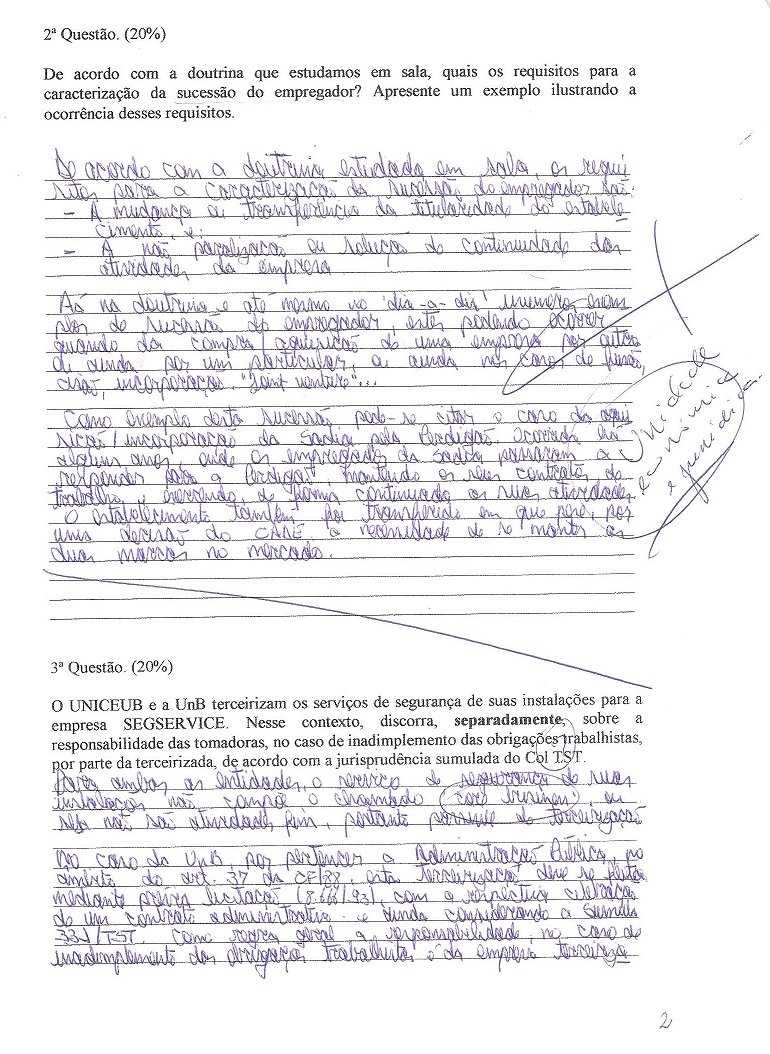 2ª Questão. (20%)
De acordo com a doutrina que estudamos em sala, quais os requisitos para a
caracterização da sucessão do empregador? Apresente um exemplo ilustrando a
ocorrência desses requisitos.
De acordo com a doutrina estudada em sala, os requi
sitos para a caracterização da sucessão do empregador são:
- A mudança ou transferência da titularidade do estabele
cimento, e;
- A não paralização ou solução de continuidade das
atividades da empresa.
Há na doutrina e até mesmo no 'dia-a-dia' inúmeros exem
plos de sucessão do empregador, estes podendo ocorrer
quando da compra/aquisição de uma empresa por outra
ou ainda por um particular, ou ainda nos casos de fusão,
cisão, incorporação, "Joint venture"...
Como exemplo desta sucessão pode-se citar o caso da aqui
sição/incorporação da Sadia pela Perdigão. Ocorrida há
alguns anos, onde os empregados da Sadia passaram a
responder para a Perdigão, mantendo os seus contratos de
trabalho, e exercendo, de forma continuada as suas atividades.
O estabelecimento também foi transferido em que pese, por
uma decisão do CADE a necessidade de se manter as
duas marcas no mercado.
Unidade
econômica
e jurídica.
3ª Questão. (20%)
O UNICEUB e a UnB terceirizam os serviços de segurança de suas instalações para a
empresa SEGSERVICE. Nesse contexto, discorra, separadamente, sobre a
responsabilidade das tomadoras, no caso de inadimplemento das obrigações trabalhistas,
por parte da terceirizada, de acordo com a jurisprudência sumulada do Col TST.
Para ambas as entidades, o serviço de segurança de suas
instalações não compõe o chamado (core business), ou
seja não são atividades fim, portanto passível de terceirização
No caso da UnB, por pertencer a Administração Pública, no
âmbito do art. 37 da CF/88, esta terceirização deve se feita
mediante prévia licitação (8.666/93), com a respectiva celebração
de um contrato administrativo e ainda considerando a Súmula
331/TST. Como regra geral a responsabilidade, no caso de
inadimplemento das obrigações trabalhistas é da empresa terceiriza
2